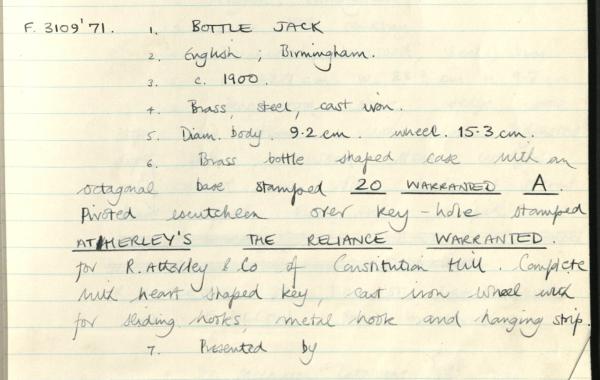 F. 3109'71. 1. BOTTLE JACK
2. English ; Birmingham.
3. c. 1900.
4. Brass, steel, cast iron.
5. Diam. body. 9.2 cm. wheel. 15.3 cm.
6. Brass bottle shaped case with an
octagonal base stamped 20 WARRANTED A.
Pivoted escutcheon over key-hole stamped
ATHERLEY'S THE RELIANCE WARRANTED.
for R. Atterley & Co of Constitution Hill. Complete
with heart shaped key, cast iron wheel with
for sliding hooks, metal hook and hanging strip.
7. Presented by